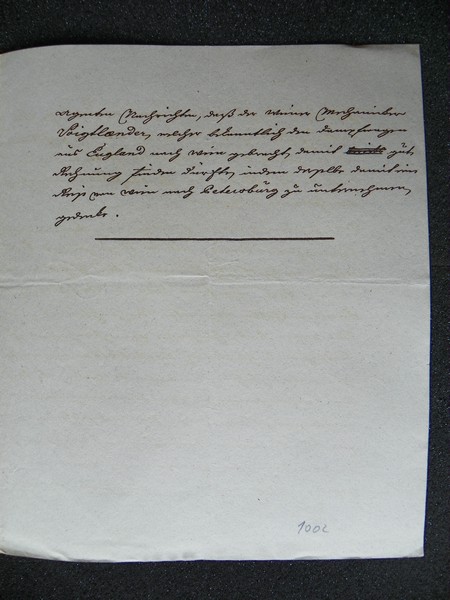 Nachrichten, daß der Wiener Mechaniker
Voigtlaender, welcher bekanntlich den Dampfwagen
aus England nach Wien gebracht, damit gute
Rechnung finden dürfte, indem derselbe damit eine
Reise von Wien nach Petersburg zu unternehmen
gedenke.
100c